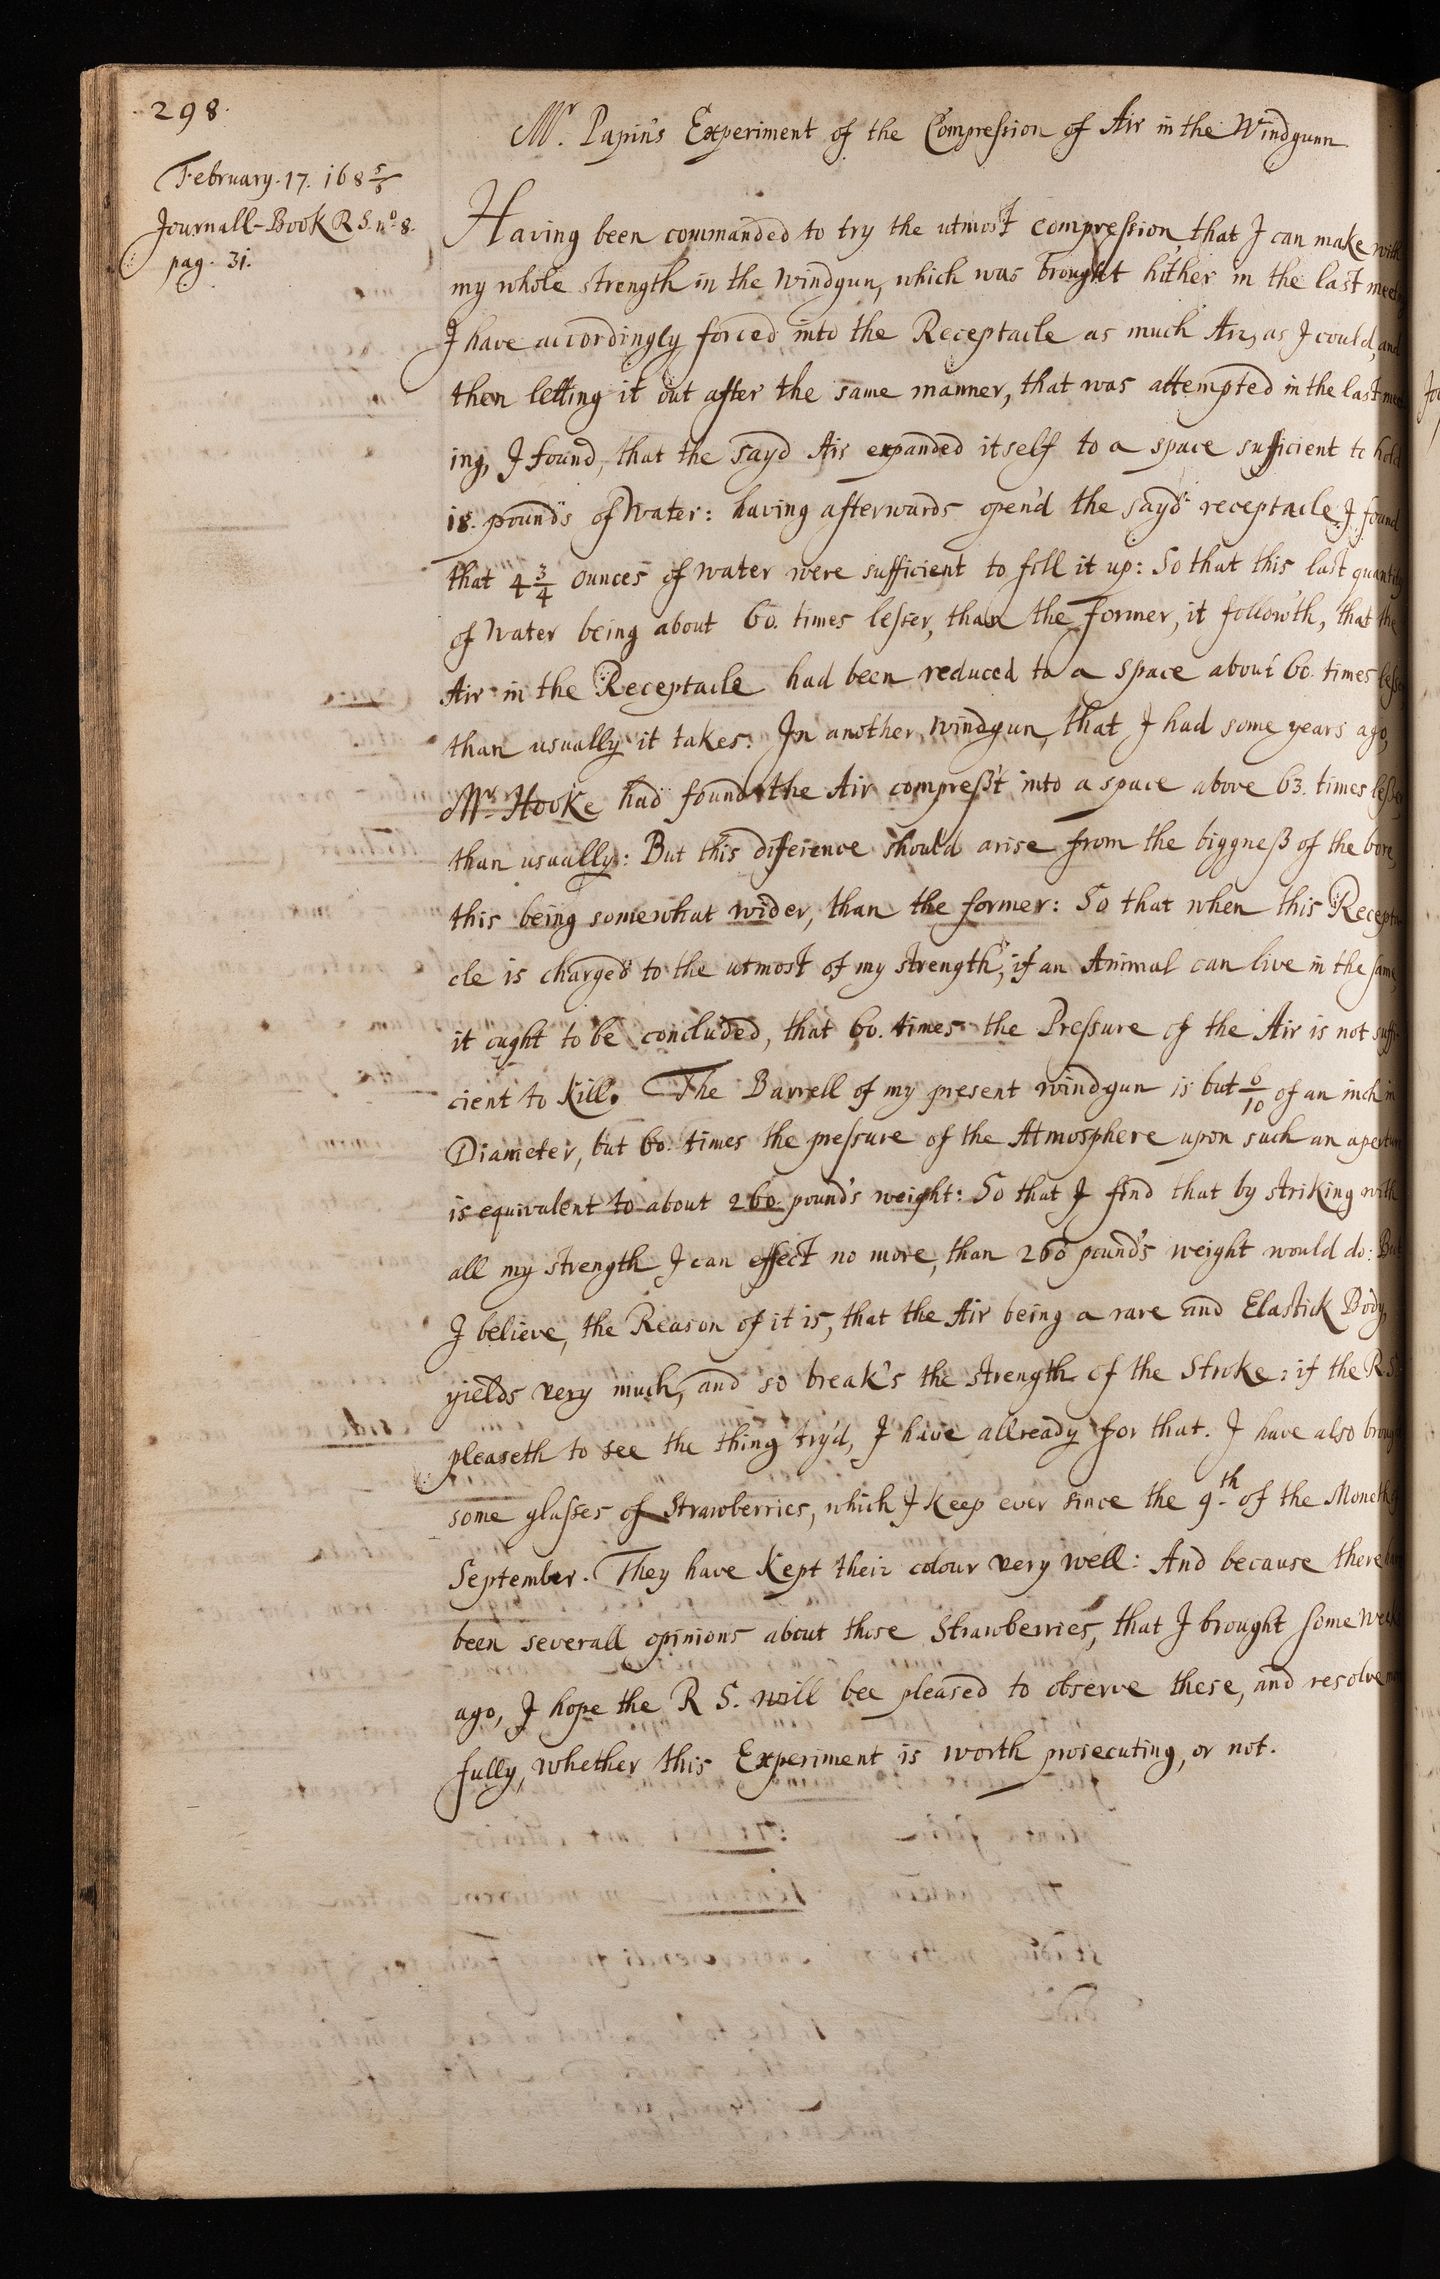 298.
Mr. Papin's Experiment of the Compression of Air in the Windgunn
February. 17. 168 5/6
Journall-Book R S. no. 8.
pag. 31.
Having been commanded to try the utmost compression, that I can make with
my whole strength in the windgun, which was brought hither in the last
I have accordingly forced into the Receptacle as much Air, as I could, and
then letting it out after the same manner, that was attempted in the last
ing, I found, that the sayd Air expanded itself to a space sufficient to hold
18. pounds of Water: having afterwards open'd the sayd receptacle I found
that 4 3/4 ounces of water were sufficient to fill it up: So that this last quantity
of Water being about 60. times lesser, than the former, it follow'th, that the
Air in the Receptacle had been reduced to a space about 60. times
than usually it takes: In another windgun, that I had some years ago,
Mr. Hooke had found the Air compresst into a space above 63. times lesser
than usually: But this diference should arise from the biggness of the bore,
this being somewhat wider, than the former: So that when this Recepta
cle is charged to the utmost of my strength, if an Animal can live in the same,
it ought to be concluded, that 60. times the Pressure of the Air is not suffi
cient to kill. The Barrell of my present windgun is but 6/10 of an inch in
Diameter, but 60. times the pressure of the Atmosphere upon such an aperture
is equivalent to about 260. pound's weight: So that I find that by striking with
all my strength I can effect no more, than 260 pound's weight would do: But
I believe, the Reason of it is, that the Air being a rare and Elastick Body,
yields very much, and so break's the strength of the Stroke: if the R S.
pleaseth to see the thing try'd, I have allready for that. I have also brought
some glasses of Strawberries, which I keep ever since the 9th. of the Moneth
September. They have kept their colour very well: And because there have
been severall opinions about those Strawberries, that I brought some weeks
ago, I hope the R S. will bee pleased to observe these, and resolve
fully, whether this Experiment is worth prosecuting, or not.